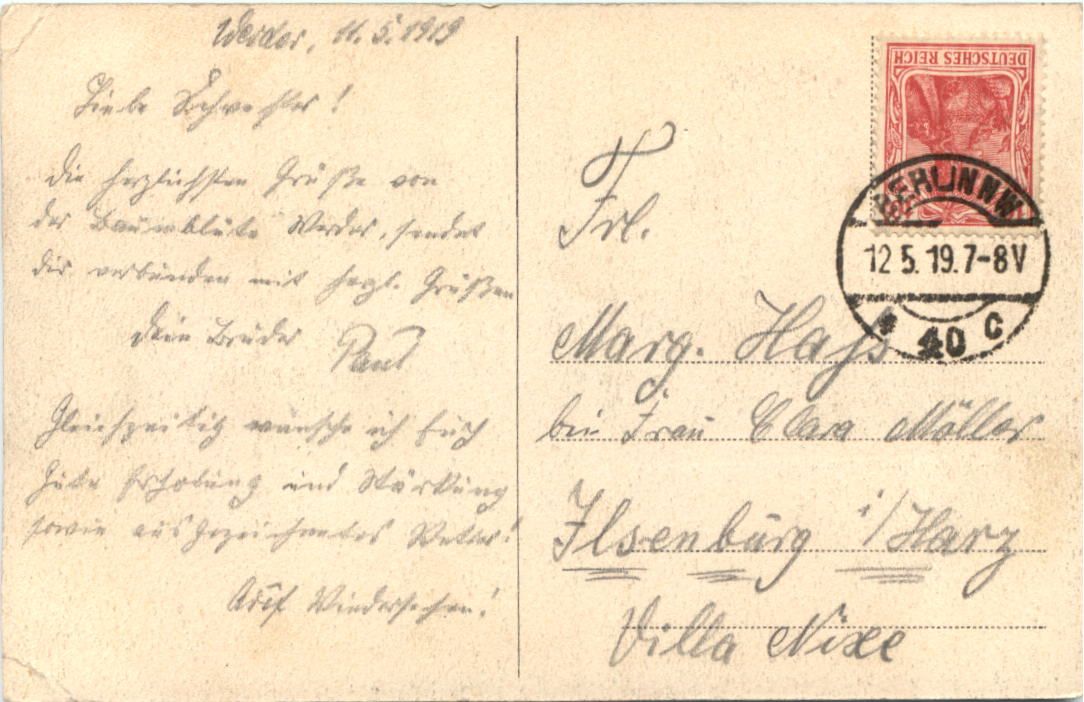 Werder, 11.5.1919
Liebe Schwester!
Die herzlichsten Grüße von
der Baumblüte Werder, sendet
dir verbunden mit herzl. Grüßen
Dein Bruder Paul
Gleichzeitig wünsche ich Euch
gute Erholung und Stärkung
sowie ausgezeichnetes Wetter!
Auf Wiedersehen!
DEUTSCHES REICH
BERLIN NW
12 5. 19. 7-8V
* 40 C
Frl.
Marg. Hays
bei Frau Clara Möller
Ilsenburg i/Harz
Villa Nixe